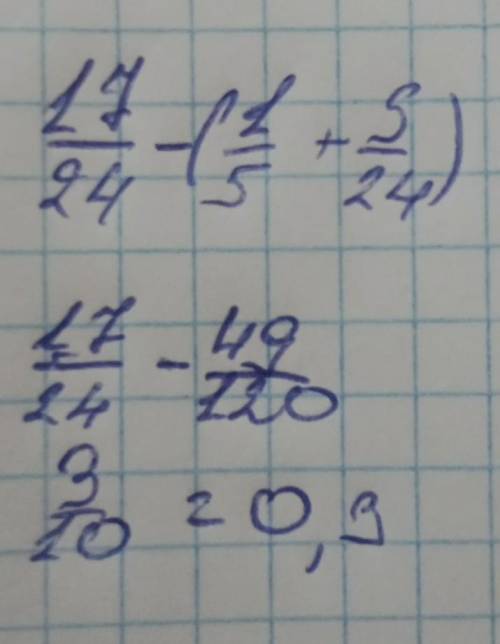 17/24 - (1/5 + 5/24)
17/24 - 49/120
3/10 = 0,3